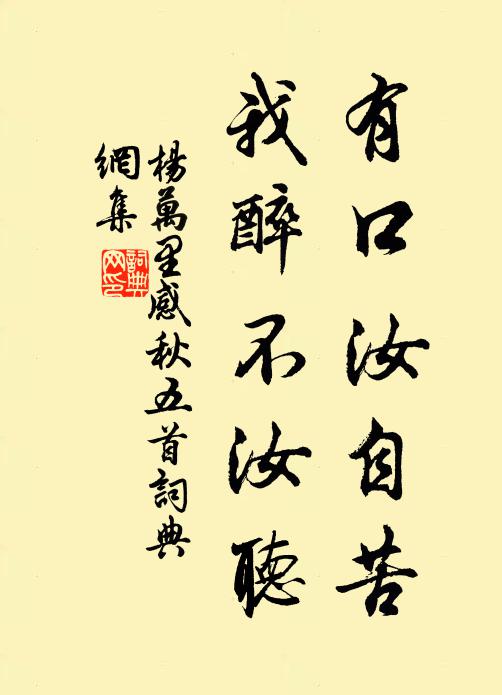 有口汝自苦
我醉不汝聽
楊萬里感秋五首詞典
網集
詞典
网印